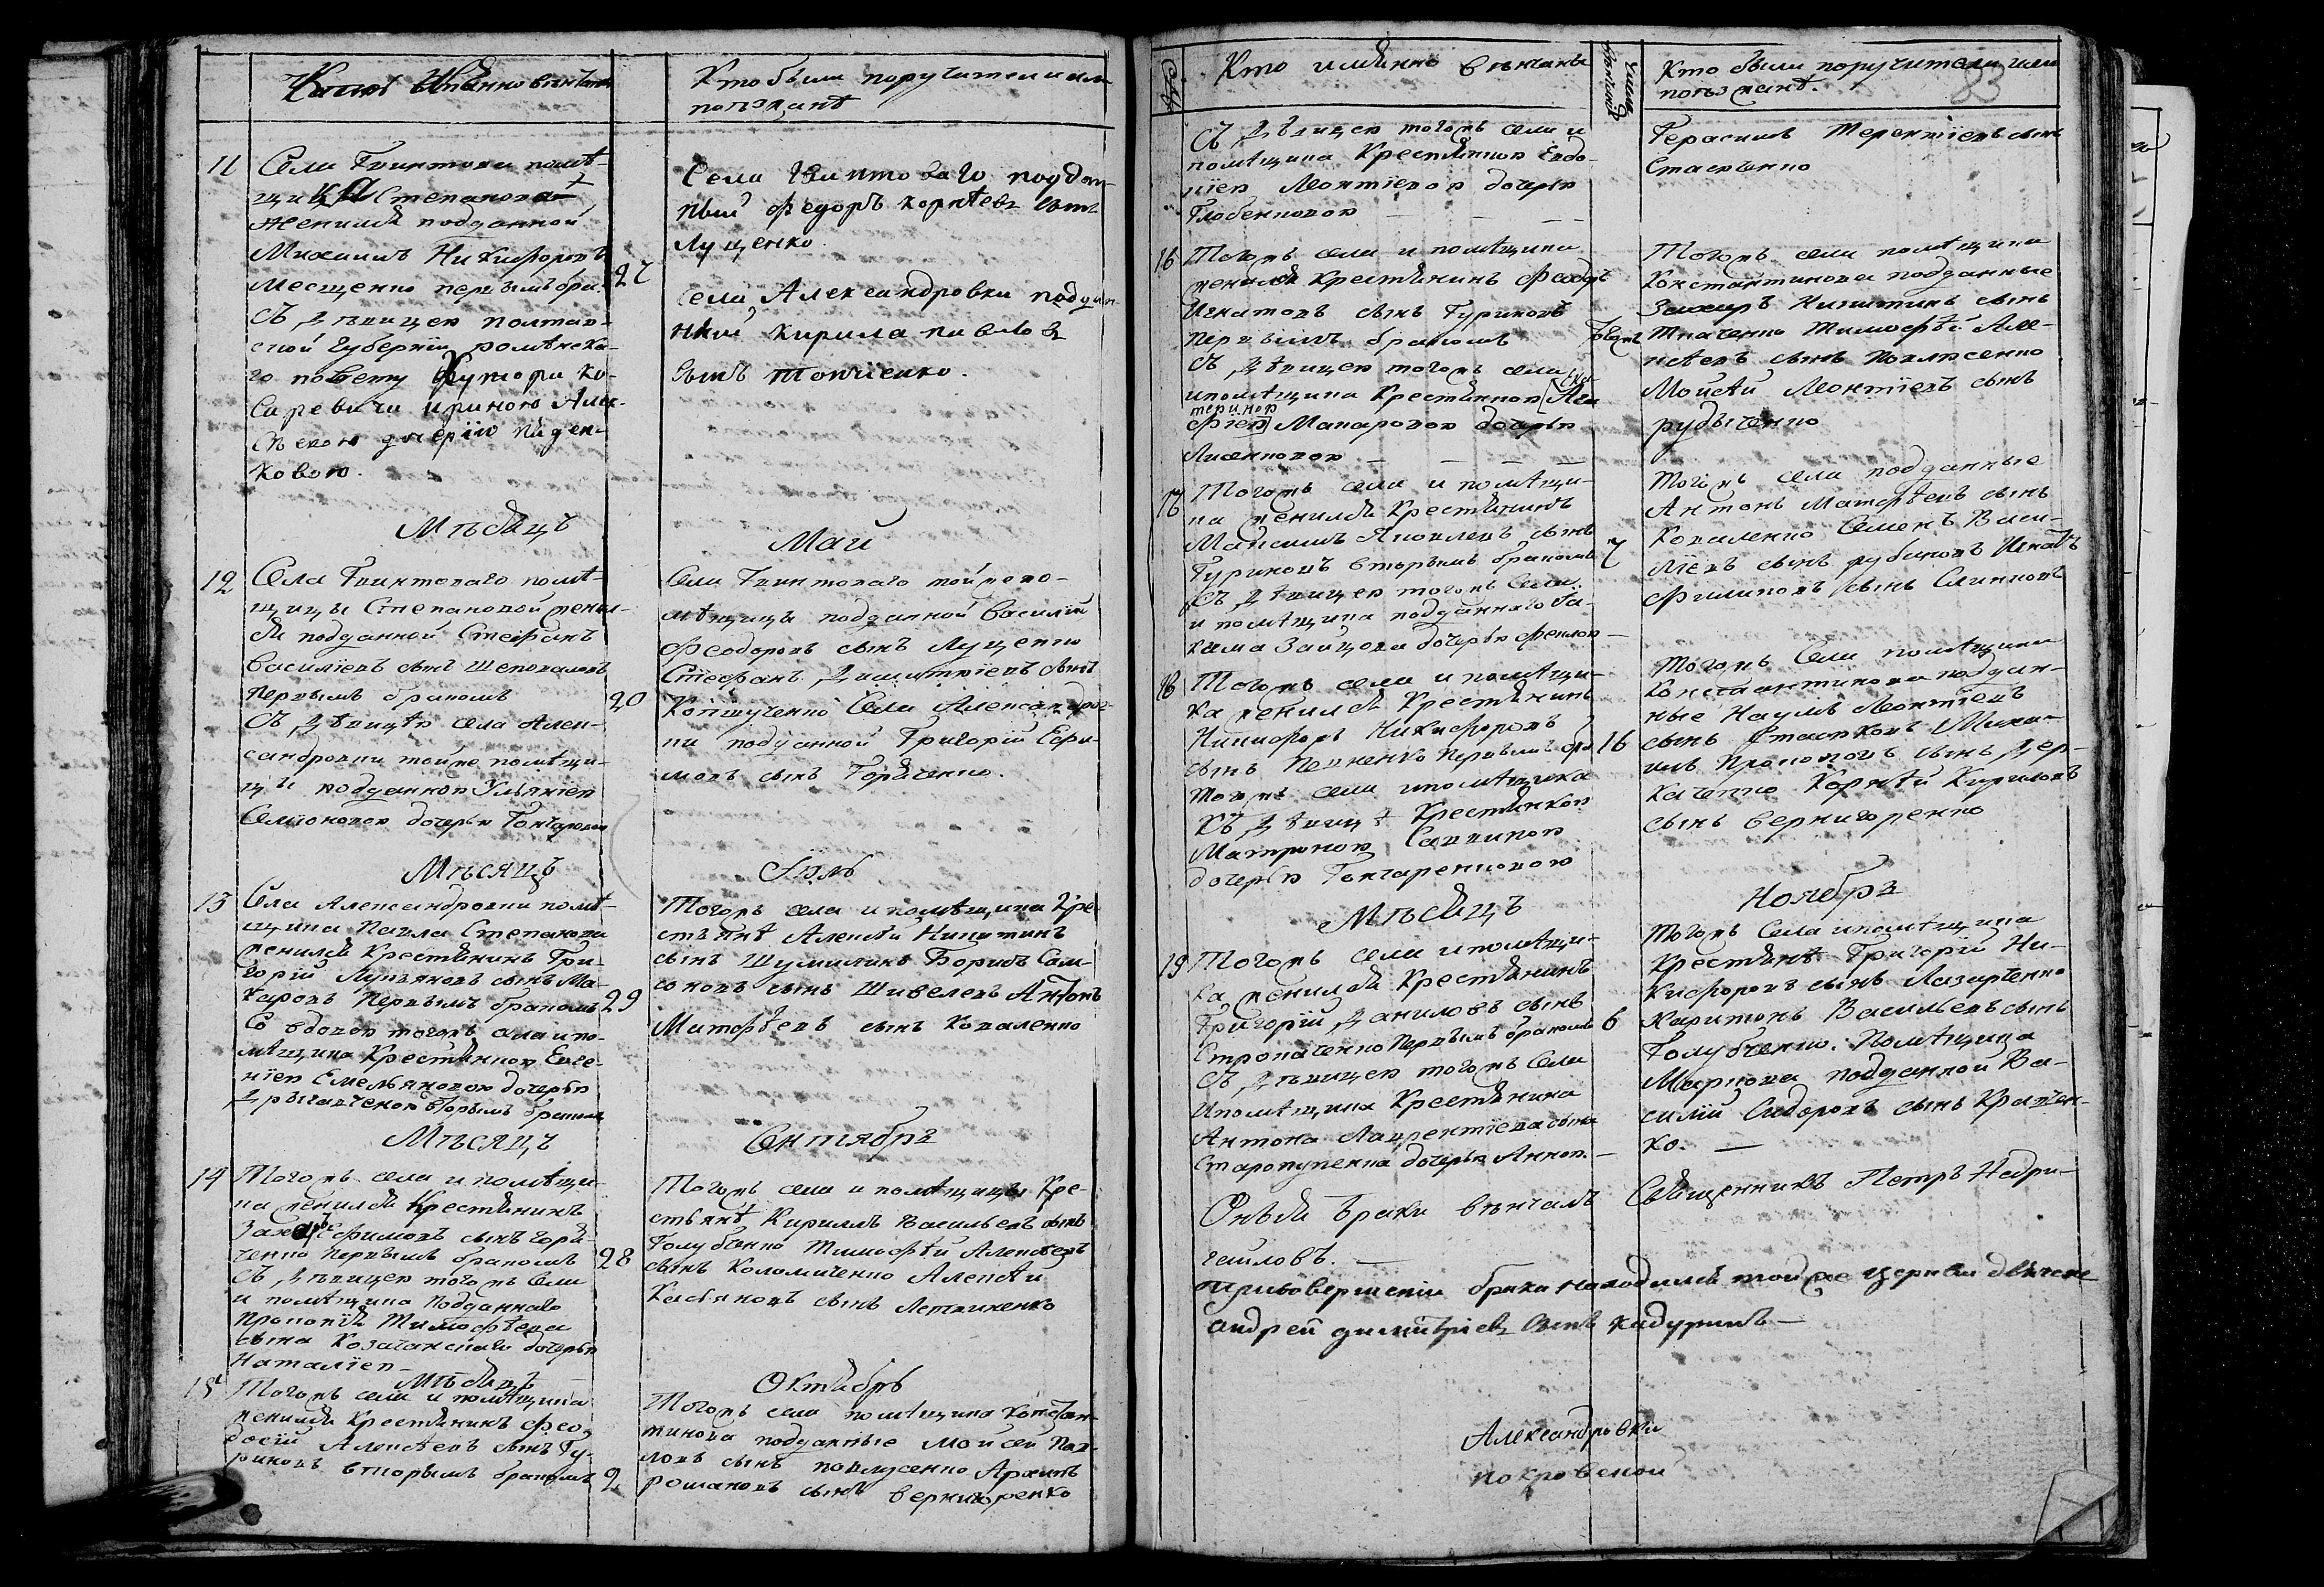 Кто имянно венчаны
Кто были поручители или
поезжанѣ
11
Села Гвинтоваго помѣ-
щика Степанова
женился подданной
Михаилъ Никифоровъ
Месщенко первымъ бра.
27
Съ дѣвицею полтав-
ской губернїи роменска-
го повету хутора Ко-
саревичи Ириною Алек-
сѣевою дочерїю
ковою.
Села Гвинтоваго поддан-
ный Федоръ Корнѣевъ сынъ
Луценко.
Села Александровки поддан-
ный Кирила Павловъ
сынъ Топчиенко.
Мѣсяцъ
Май
12
Села Гвинтоваго помѣ-
щицы Степановой женил-
ся подданной Стефанъ
Василїевъ сынъ Шеповаловъ
первымъ бракомъ
20
Съ дѣвицею села Алек-
сандровки тойже помѣщи-
цы подданною Ульянїею
Семїоновою дочерью Гончаровою
Села Гвинтоваго тойже по-
мѣщицы подданной Василїй
Феодоровъ сынъ Луценко
Стефанъ Димитрїевъ сынъ
Села Александров-
ки подданной Григорїй Ефи-
мовъ сынъ Горяченко.
Мѣсяцъ
Їюль
13
Села Александровки помѣ-
щика Павла Степанова
женился Крестьянинъ Гри-
горїй Лукьяновъ сынъ Ма-
каровъ первымъ бракомъ
29
Со вдовою тогожъ села и по-
мѣщика Крестьянкою Евге-
нїею Емельяновою дочерью
вторымъ бракомъ
Тогожъ села и помѣщика Кре-
стьянѣ Алексѣй Никитинъ
сынъ Шумилинъ Борисъ Сам-
соновъ сынъ Шивелевъ Антонъ
Матфѣевъ сынъ Коваленко
Мѣсяцъ
Сентябрь
14
Тогожъ села и помѣщи-
ка женился Крестьянинъ
Захаръ Ефимовъ сынъ Горя-
ченко первымъ бракомъ
28
Съ дѣвицею тогожъ села
и помѣщика подданнаго
Прокопїя Тимофѣева
сына Козачанскаго дочерью
Наталїею
Тогожъ села и помѣщицы Кре-
стьянѣ Кириллъ Васильевъ сынъ
Голубченко Тимофѣй Алексѣевъ
сынъ Коломиченко Алексѣй
Касьяновъ сынъ
Мѣсяцъ
Октябрь
15
Тогожъ села и помѣщика
женился Крестьянинъ Фео-
досїй Алексѣевъ сынъ Гу-
риновъ вторымъ бракомъ
2
Тогожъ села помѣщика Констан-
тинова подданные Мойсей Пав-
ловъ сынъ Павлусенко Архипъ
Романовъ сынъ Вернигоренко
Кто имянно венчаны
Кто были поручители или
поезжанѣ.
83
Съ дѣвицею тогожъ села и
помѣщика Крестьянкою Евдо-
кїею Леонтїевою дочерью
Глобенковою
Герасимъ Терентїевъ сынъ
Стасченко
16
Тогожъ села и помѣщика
женился Крестьянинъ Феодоръ
Игнатовъ сынъ Гуриковъ
первымъ бракомъ
Съ дѣвицею тогожъ села
и помѣщика Крестьянкою
Макаровою дочерью
Лисенковою
Тогожъ села помѣщика
Константинова подданные
Захаръ Никитинъ сынъ
Ткаченко Тимофѣй Але-
ксѣевъ сынъ Павлусенко
Мойсѣй Леонтїевъ сынъ
Рудыченко
17
Тогожъ села и помѣщи-
ка женился Крестьянинъ
Максимъ Яковлевъ сынъ
Гуриковъ вторымъ бракомъ
7
Съ дѣвицею тогожъ села
и помѣщика подданнаго
Зайцова дочерью Феклою
Тогожъ села подданные
Антонъ Матфѣевъ сынъ
Коваленко Семенъ Васи-
лїевъ сынъ Рубановъ Игнатъ
Филиповъ сынъ Слинковъ
18
Тогожъ села и помѣщи-
ка женился Крестьянинъ
Никифоръ Никифоровъ
сынъ первымъ бра
16
тогожъ села и помѣщика
къ дѣвицѣ Крестьянкою
Матроною Саввиною
дочерью Гончаренковою
Тогожъ села помѣщика
Константинова поддан-
ные Наумъ Леонтїевъ
сынъ Стасковъ Миха-
илъ Прокоповъ сынъ Дер-
каченко Корнѣй Кириловъ
сынъ Вернигоренко
Мѣсяцъ
Ноябрь
19
Тогожъ села и помѣщи-
ка женился Крестьянинъ
Григорїй Даниловъ сынъ
Стропаченко первымъ бракомъ
6
Съ дѣвицею тогожъ села
и помѣщика Крестьянина
Антона Лаврентїева сына
дочерью Анною.
Тогожъ села и помѣщика
Крестьянѣ Григорїй Ни-
кифоровъ сынъ Лазаренко
Харитонъ Васильевъ сынъ
Голубченко. Помѣщица
Маркова подданной Ва-
силїй Сидоровъ сынъ Кравчен-
ко.
Онѣя браки венчалъ Священникъ Петръ Недри-
гайловъ.
При совершенїи брака находился тойже церкви дьячекъ
Андрей Димитрїевъ сынъ Кадуринъ
Александровки
Покровской